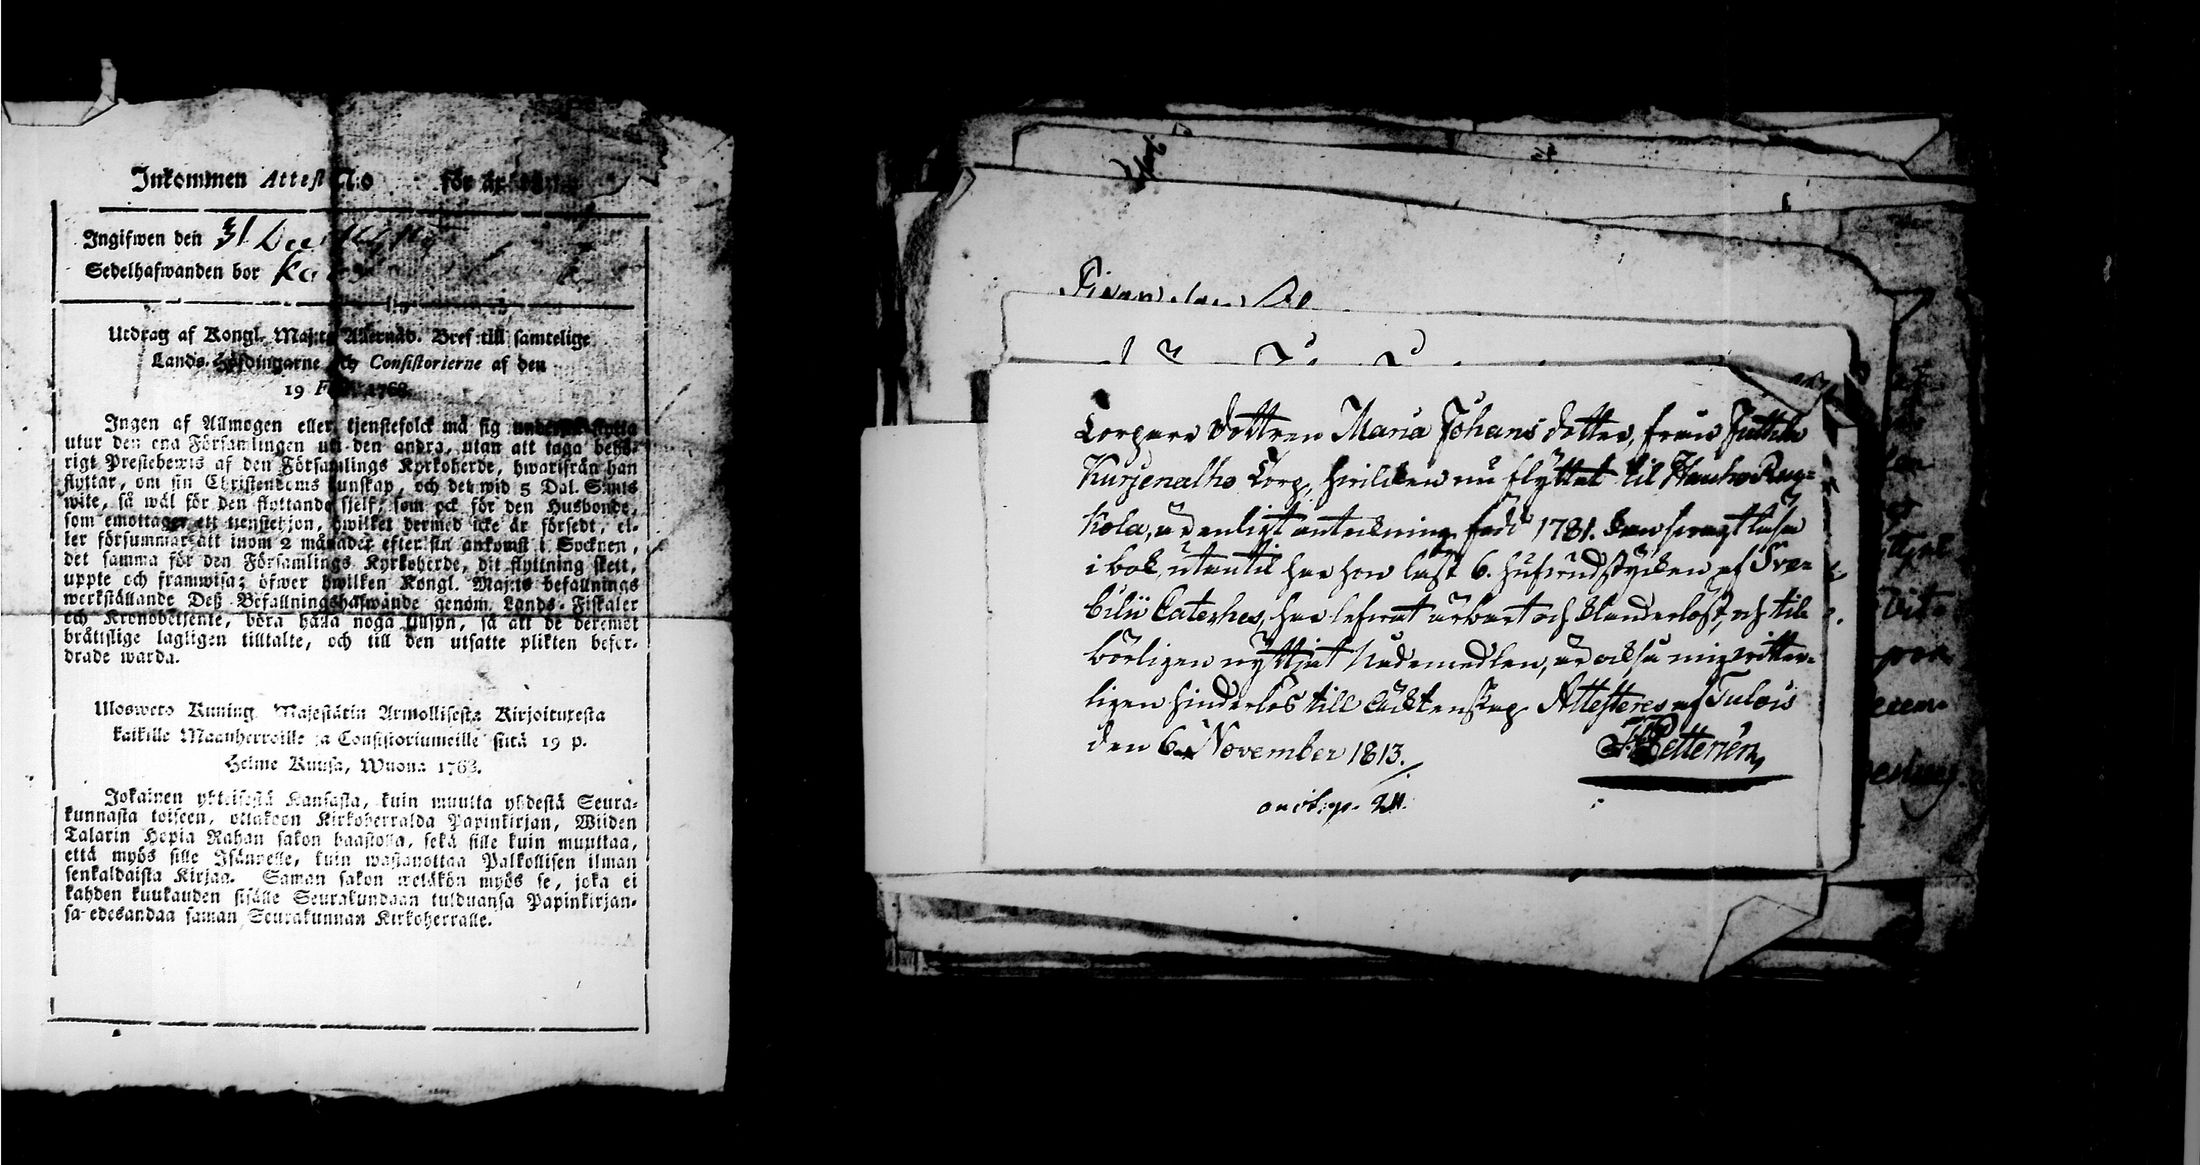 Inkommen Attest N:o för år
Ingifwen den 31 Dec
Sedelhafwanden bor
Utdrag af Kongl. Maj:ts Allernåd. Bref till samtelige
Lands-Höfdingarne och Consistorierne af den
19 Febr. 1768.
Ingen af Allmogen eller tjenstefolck må sig understå flytta
utur den ena Församlingen uti den andra, utan att taga behö-
rigt Prestebewis af den Församlings Kyrkoherde, hwarifrån han
flyttar, om sin Christendoms kunskap, och det wid 5 Dal. S:mts
wite, så wäl för den flyttande sjelf, som ock för den Husbonde,
som emottager ett tienstehjon, hwilket dermed icke är försedt, el-
ler försummar att inom 2 månader efter sin ankomst i Socknen,
det samma för den Församlings Kyrkoherde, dit flyttning skett,
uppte och framwisa; öfwer hwilken Kongl. Maj:ts befallnings
werkställande Deß Befallningshafwande genom Lands-Fiskaler
och Kronobetjente, böra hålla noga tillsyn, så att de deremot
bråttslige lagligen tilltalte, och till den utsatte plikten befor-
drade warda.
Uloswero Kuning. Majestätin Armollisesta Kirjoituxesta
kaikille Maanherroille ja Consistoriumeille siitä 19 p.
Helme Kuusa, Wuona 1768.
Jokainen yhteisestä Kansasta, kuin muutta yhdestä Seura-
kunnasta toiseen, ottakoon Kirkoherralda Papinkirjan, Wiiden
Talarin Hopia Rahan sakon haastolla, sekä sille kuin muuttaa,
että myös sille Isännelle, kuin wastanottaa Palkollisen ilman
senkaldaista Kirjaa. Saman sakon wetäkön myös se, joka ei
kahden kuukauden sisälle Seurakundaan tulduansa Papinkirjan-
sa edesandaa saman Seurakunnan Kirkoherralle.
Torpare Dottren Maria Johans dotter, från Juttila
Kurjenalho Torp, hvilcken nu flyttat til Hauho
kola, är enligt anteckning född 1781. kan svagt läsa
i bok, utantil har hon läst 6. hufvudstycken af Sve-
bilii Cateches, har lefvat ärbart och klanderlöst, och til-
börligen nyttjat Nådemedlen, är också mig vitter-
ligen hinderlös till Äcktenskap. Attesteres af Tulois
den 6 November 1813.